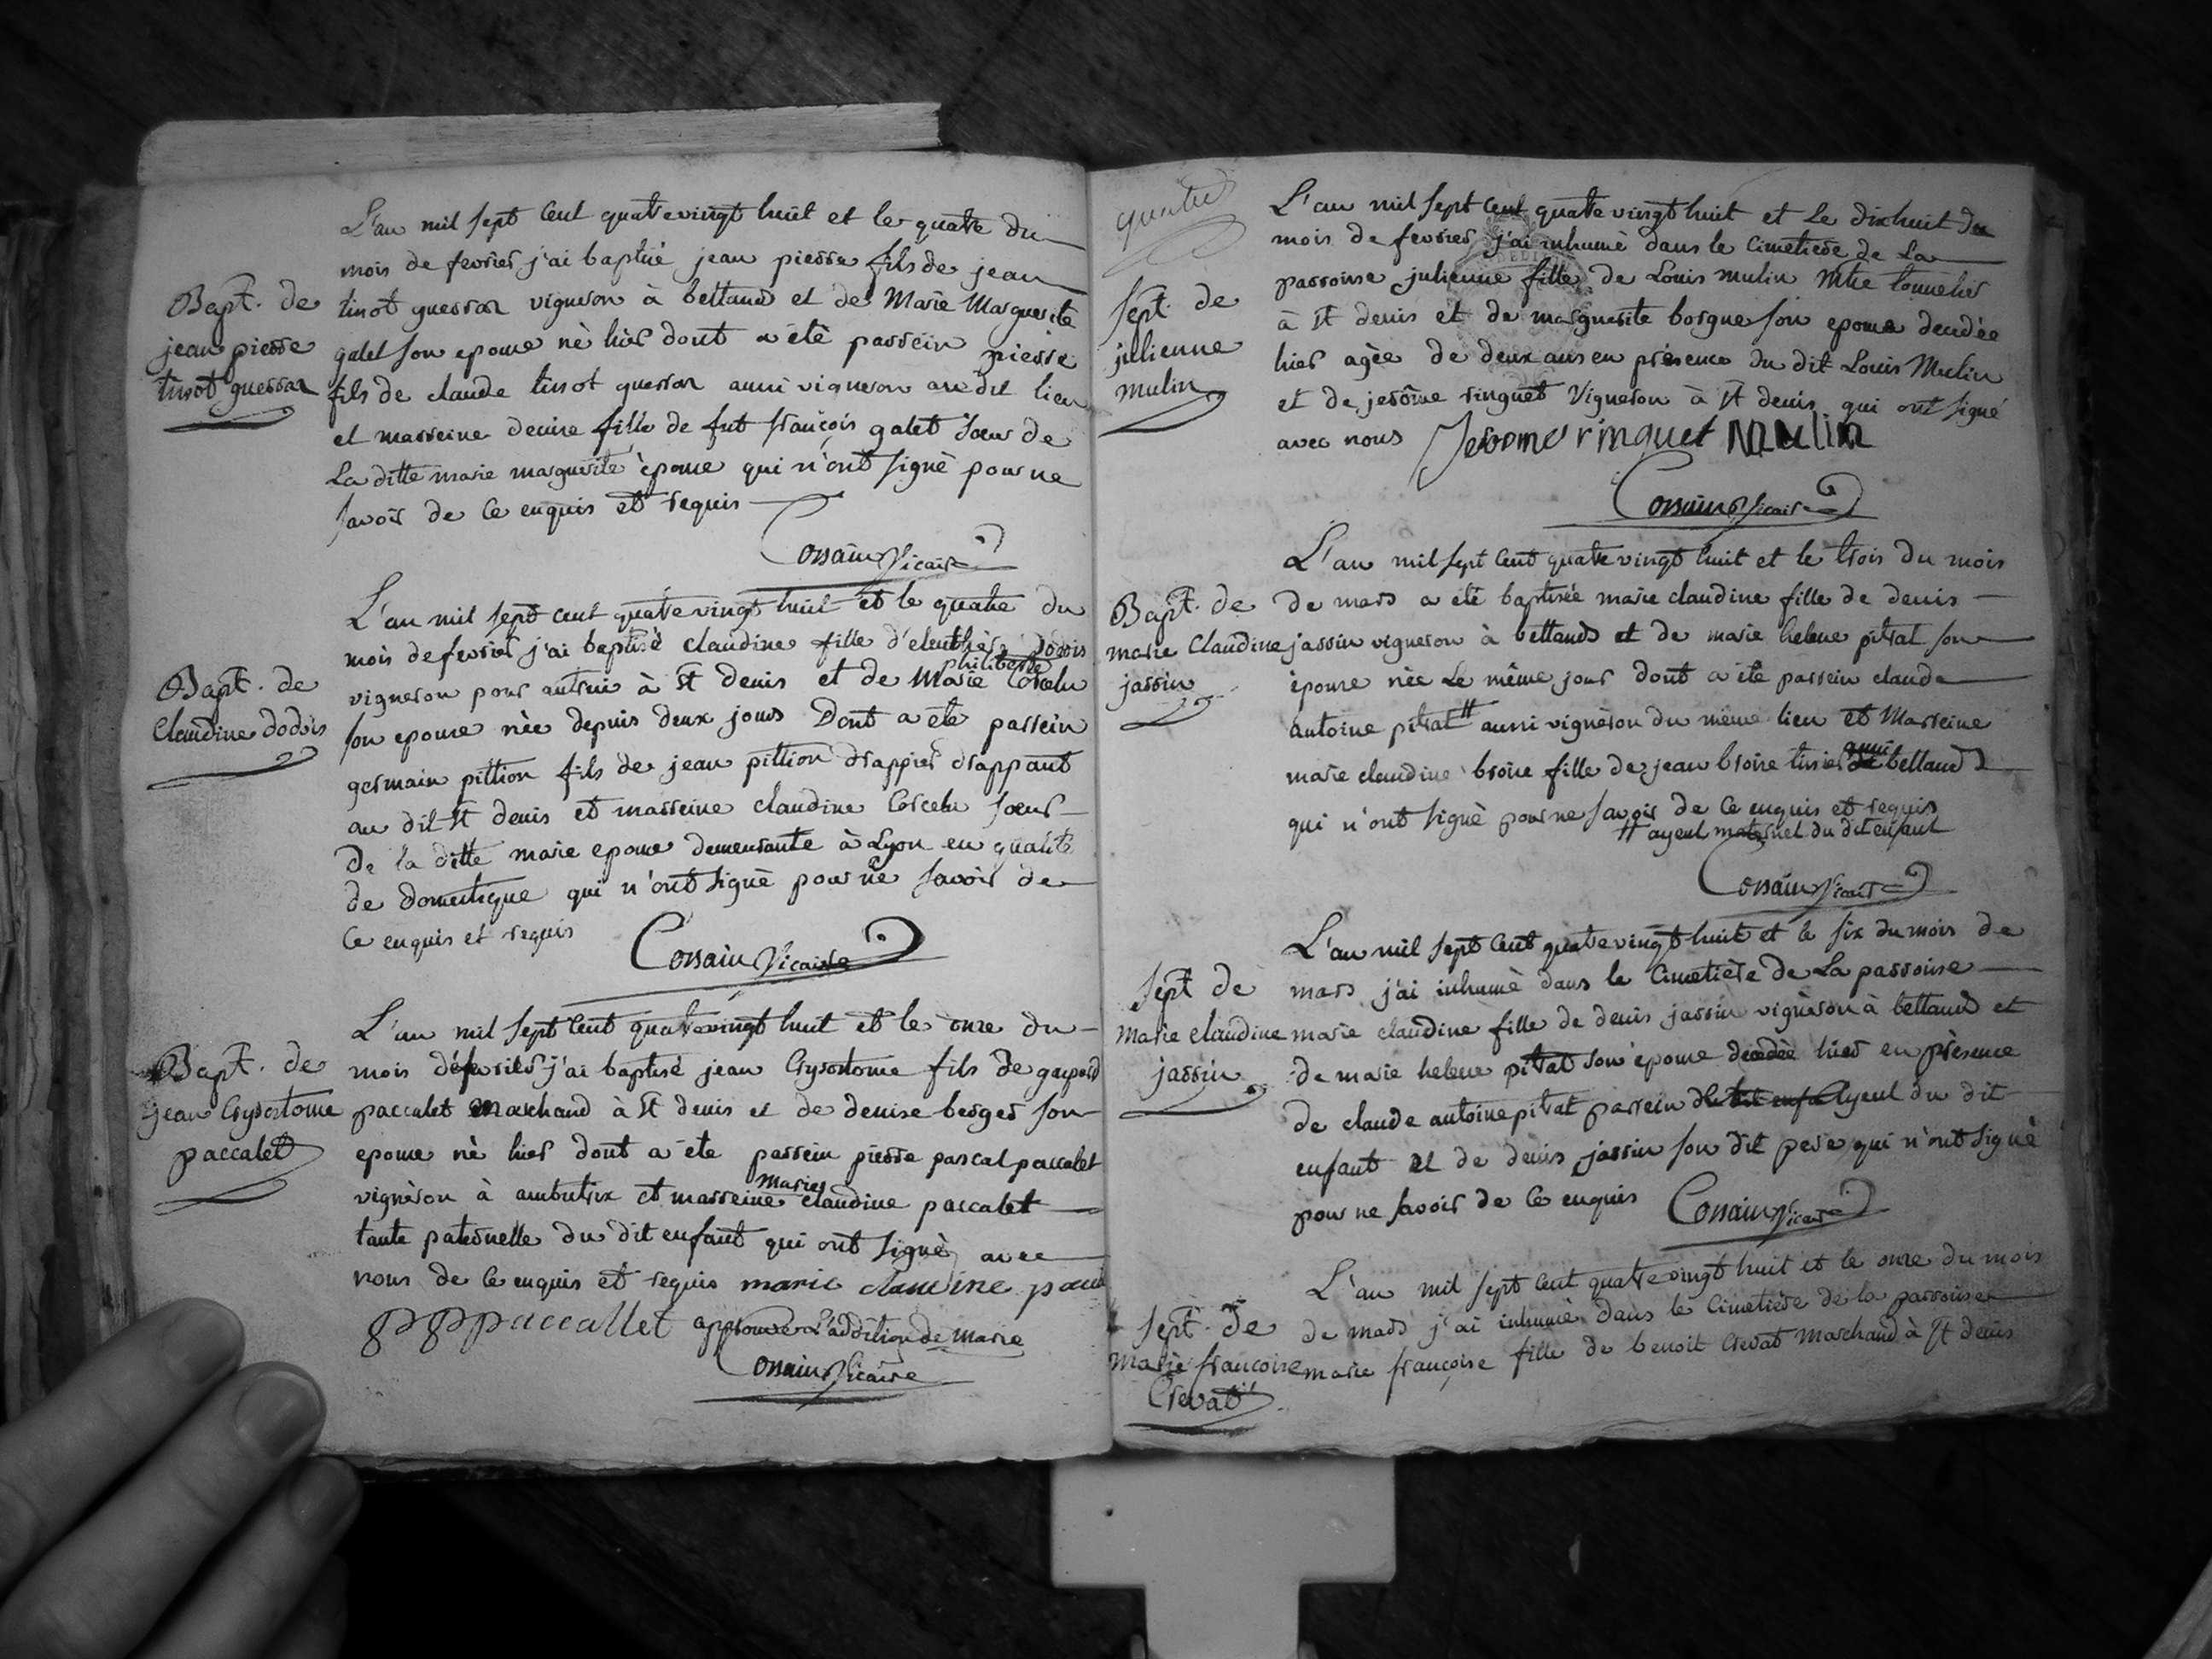 L'an mil sept cent quatrevingt huit et le quatre du
mois de fevrier j'ai baptisé jean pierre fils de jean
Bapt. de
jean pierre
tinot guerrar
tinot guerrar vigneron à bettand et de Marie Marguerite
galet son epouse né hier dont a été parrein pierre
fils de claude tinot guerrar aussi vigneron au dit lieu
et marreine denise fille de fut françois galet soeur de
La ditte marie marguerite épouse qui n'ont signé pour ne
savoir de ce enquis et requis
Corsain Vicaire
L'an mil sept cent quatrevingt huit et le quatre du
mois de fevrier j'ai baptisé claudine fille d'eleuthère dodois
philiberte
Bapt. de
Claudine dodois
vigneron pour autrui à St denis et de Marie Corcelu
son epouse née depuis deux jours Dont a été parrein
germain pittion fils de jean pittion drappier drappant
au dit St denis et marreine claudine Corcelu soeur
de la ditte marie epouse demeurante à Lyon en qualité
de domestique qui n'ont signé pour ne savoir de
ce enquis et requis
Corsain Vicaire
L'an mil sept cent quatrevingt huit et le onze du
Bapt. de
jean Crysostome
paccalet
mois de fevrier j'ai baptisé jean Crysostome fils de gaspard
paccalet Marchand à St denis et de denise berger son
epouse né hier dont a été parrein pierre pascal paccalet
marie
vigneron à ambutrix et marreine claudine paccalet
tante paternelle du dit enfant qui ont signé avec
nous de ce enquis et requis marie claudine
pppaccallet approuvé L'addition de marie
Corsain Vicaire
quatre
L'an mil sept cent quatre vingt huit et le dixhuit du
mois de fevrier j'ai inhumé dans le Cimetière de La
Sept. de
julienne
mulin
parroisse julienne fille de Louis mulin Mtre tonnelier
à St denis et de marguerite borgne son epouse decedée
hier agée de deux ans en présence du dit Louis Mulin
et de jerôme ringuet Vigneron à St denis qui ont signé
avec nous Jerome ringuet Mulin
Corsain Vicaire
L'an mil sept cent quatre vingt huit et le trois du mois
Bapt. de
marie Claudine
jassin
de mars a été baptisée marie claudine fille de denis
jassin vigneron à bettand et de marie helene pitrat son
épouse née Le même jour dont a été parrein claude
antoine pitrat # aussi vigneron du même lieu et Marreine
marie claudine broire fille de jean broire tissier aussi bettand
qui n'ont signé pour ne savoir de ce enquis et requis
# ayeul maternel du dit enfant
Corsain Vicaire
L'an mil sept cent quatrevingt huit et le six du mois de
Sept de
marie claudine
jassin
mars j'ai inhumé dans le Cimetière de La parroisse
marie claudine fille de denis jassin vigneron à bettand et
de marie helene pitrat son épouse decedée hier en présence
de claude antoine pitrat parrein ayeul du dit
enfant et de denis jassin son dit pere qui n'ont signé
pour ne savoir de ce enquis
Corsain Vicaire
L'an mil sept cent quatrevingt huit et le onze du mois
Sept. de
marie françoise
Crevat
de mars j'ai inhumé dans le Cimetière de la parroisse
marie françoise fille de benoit Crevat Marchand à St denis